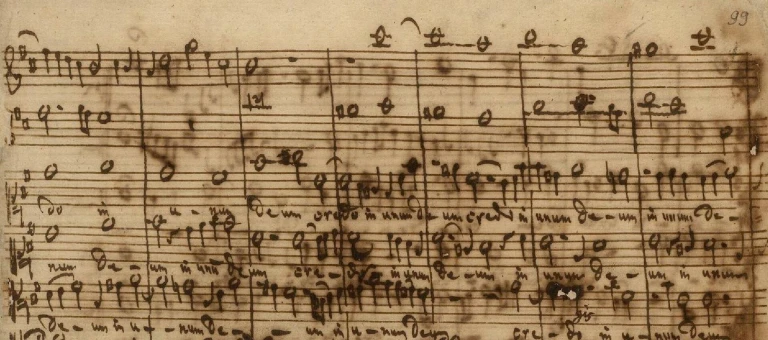 99
do in u - num de um credo in unum de um credo in unum de - um in unum de -
num de - um in unum deum cre - do in unum de - um in unum de - um in unum
de - um in u - num de - um in u - num deum cre - do in u - num deum